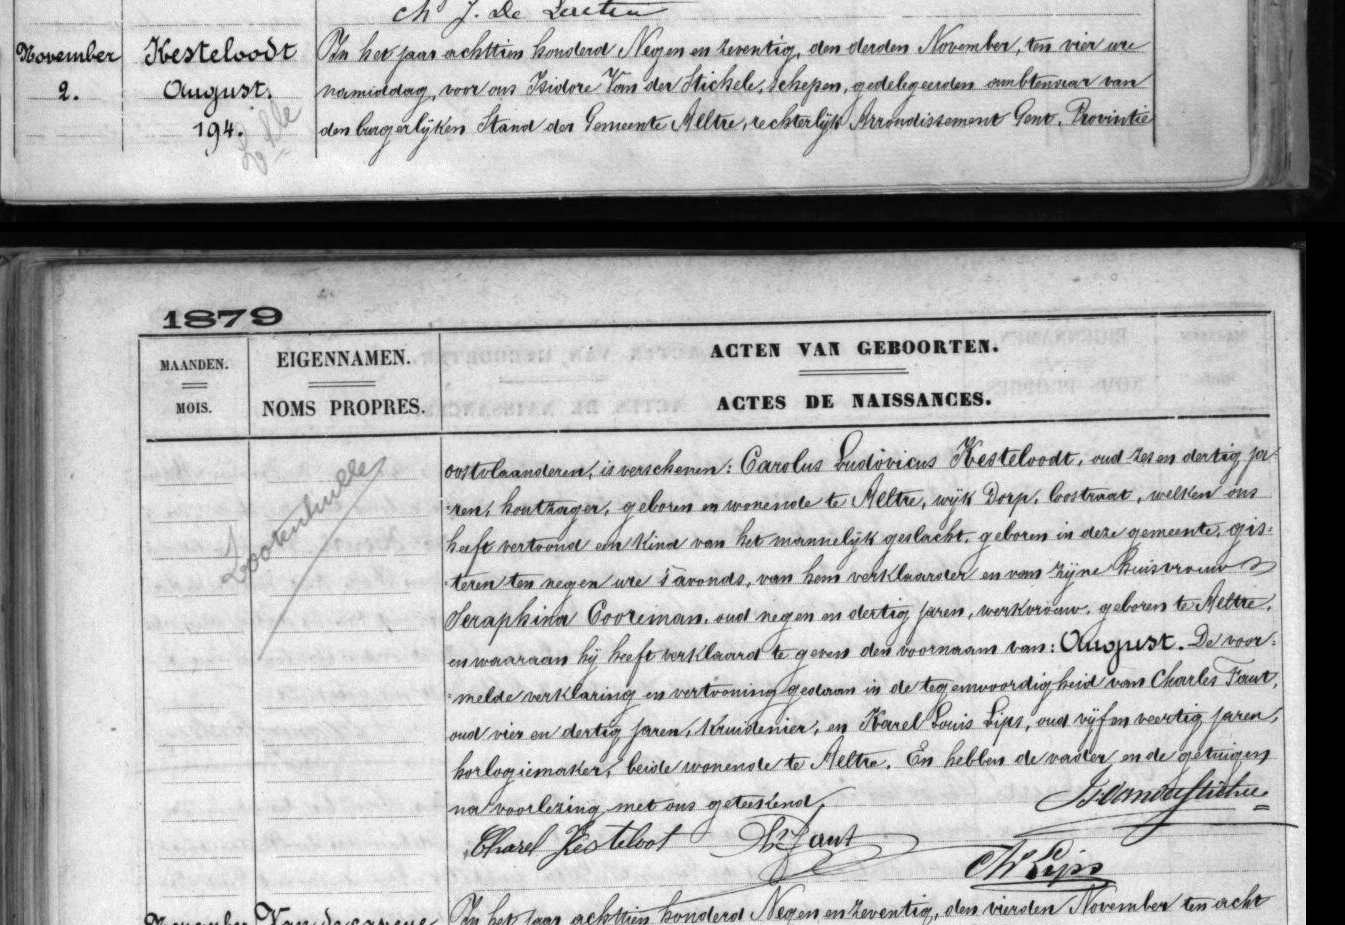 Ch. J. De
November
2.
Kesteloodt
August.
194.
In het jaar achttien honderd Negen en zeventig, den derden November, ten vier ure
namiddag, voor ons Isidore Van der Stichele, Schepen, gedelegeerden ambtenaar van
den burgerlijken Stand der Gemeente Aeltre, rechterlijk Arrondissement Gent, Provintie
1879
MAANDEN.
MOIS.
EIGENNAMEN.
NOMS PROPRES.
ACTEN VAN GEBOORTEN.
ACTES DE NAISSANCES.
Lootenhulle
oostvlaanderen, is verschenen: Carolus Ludovicus Kesteloodt, oud zes en dertig ja-
ren, houtzager, geboren en wonende te Aeltre, wijk Dorp, loostraat, welken ons
heeft vertoond een kind van het mannelijk geslacht, geboren in deze gemeente, gis=
teren ten negen ure s'avonds, van hem verklaarder en van zijne huisvrouw
Seraphina Cooreman, oud negen en dertig jaren, werkvrouw, geboren te Aeltre,
en waaraan hij heeft verklaard te geven den voornaam van: August. De voor-
melde verklaring en vertooning gedaan in de tegenwoordigheid van Charles Faut,
oud vier en dertig jaren, kruidenier, en Karel Louis Lips, oud vijf en veertig jaren,
horlogiemaker, beide wonende te Aeltre. En hebben de vader en de getuigen
na voorlezing met ons geteekend,
Is. Vanderstichele
Charel Kesteloot Ch. Faut
Ch. L. Lips
November
In het jaar achttien honderd Negen en zeventig, den vierden November ten acht